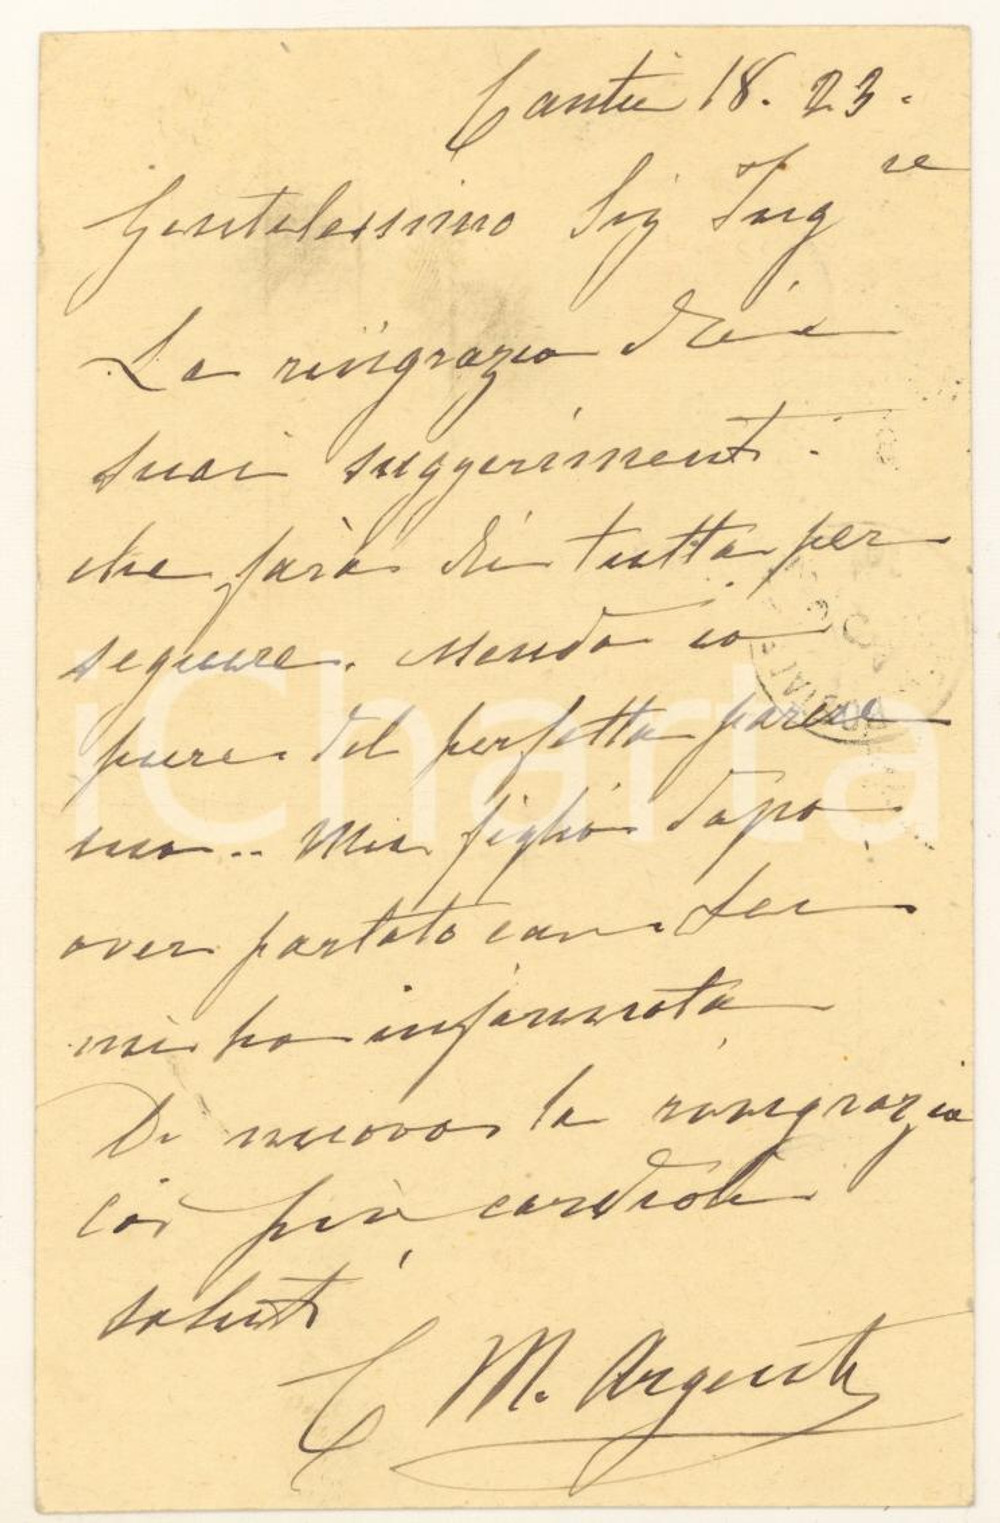 Cantù 18. 23.
Gentilissimo Sig Ing re
La ringrazio dei
suoi suggerimenti
che farò di tutto per
seguire. Mendo io
pure del perfetto parere
suo.. Mio figlio dopo
aver parlato con Lei
mi ha informato
Di nuovo la ringrazio
coi più cordiali
saluti
C M. Argenti
iCharta